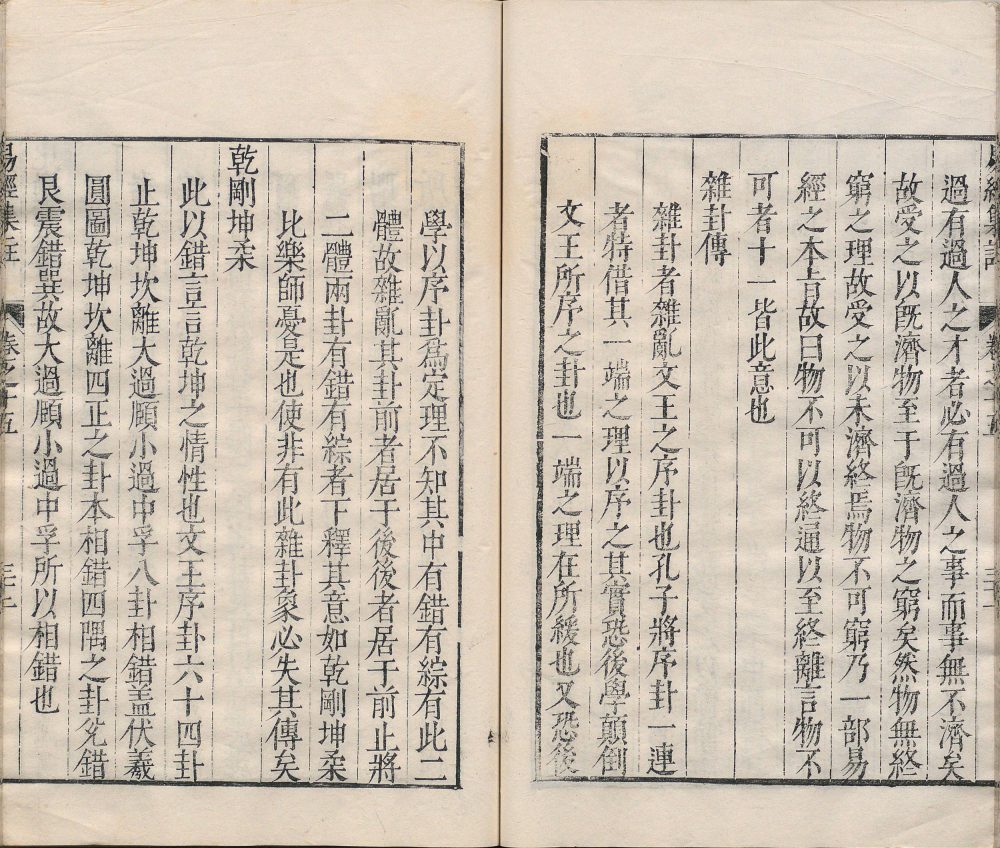 過有過人之才者必有過人之事而事無不濟矣
故受之以既濟物至于既濟物之窮矣然物無終
窮之理故受之以未濟終焉物不可窮乃一部易
經之本旨故曰物不可以終通以至終離言物不
可者十一皆此意也
雜卦傳
雜卦者雜亂文王之序卦也孔子將序卦一連
者特借其一端之理以序之其實恐後學顛倒
文王所序之卦也一端之理在所緩也又恐後
學以序卦為定理不知其中有錯有綜有此二
體故雜亂其卦前者居于後後者居于前止將
二體兩卦有錯有綜者下釋其意如乾剛坤柔
比樂師憂是也使非有此雜卦象必失其傳矣
乾剛坤柔
此以錯言言乾坤之情性也文王序卦六十四卦
止乾坤坎離大過頤小過中孚八卦相錯盖伏羲
圓圖乾坤坎離四正之卦本相錯四隅之卦兌錯
艮震錯巽故大過頤小過中孚所以相錯也
易經集註 卷之十五